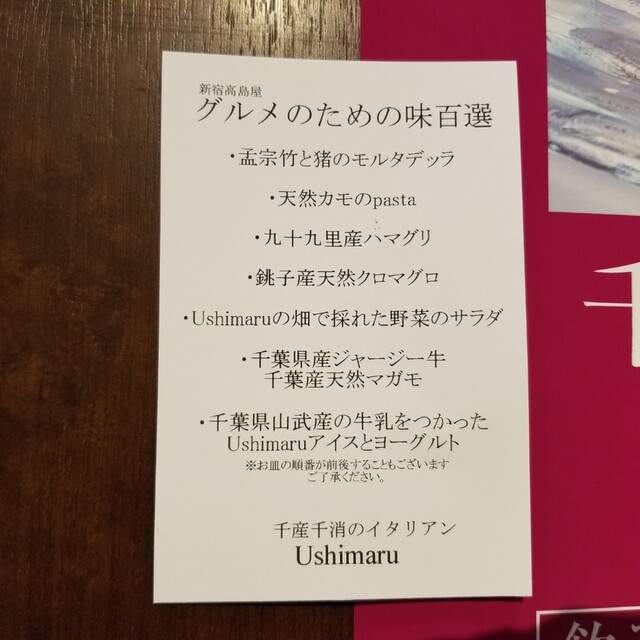 新宿高島屋
グルメのための味百選
・孟宗竹と猪のモルタデッラ
・天然カモのpasta
・九十九里産ハマグリ
・銚子産天然クロマグロ
・Ushimaruの畑で採れた野菜のサラダ
・千葉県産ジャージー牛
千葉産天然マガモ
・千葉県山武産の牛乳をつかった
Ushimaruアイスとヨーグルト
※お皿の順番が前後することもございます
ご了承ください。
千産千消のイタリアン
Ushimaru